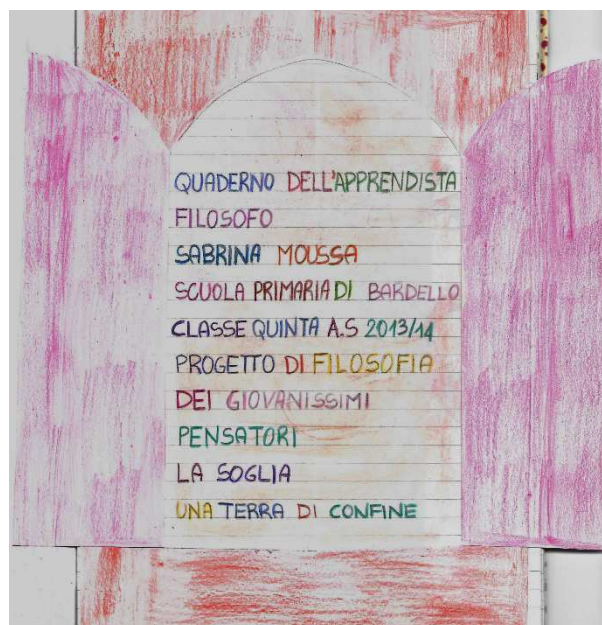 QUADERNO DELL'APPRENDISTA
FILOSOFO
SABRINA MOUSSA
SCUOLA PRIMARIA DI BARDELLO
CLASSE QUINTA A.S 2013/14
PROGETTO DI FILOSOFIA
DEI GIOVANISSIMI
PENSATORI
LA SOGLIA
UNA TERRA DI CONFINE